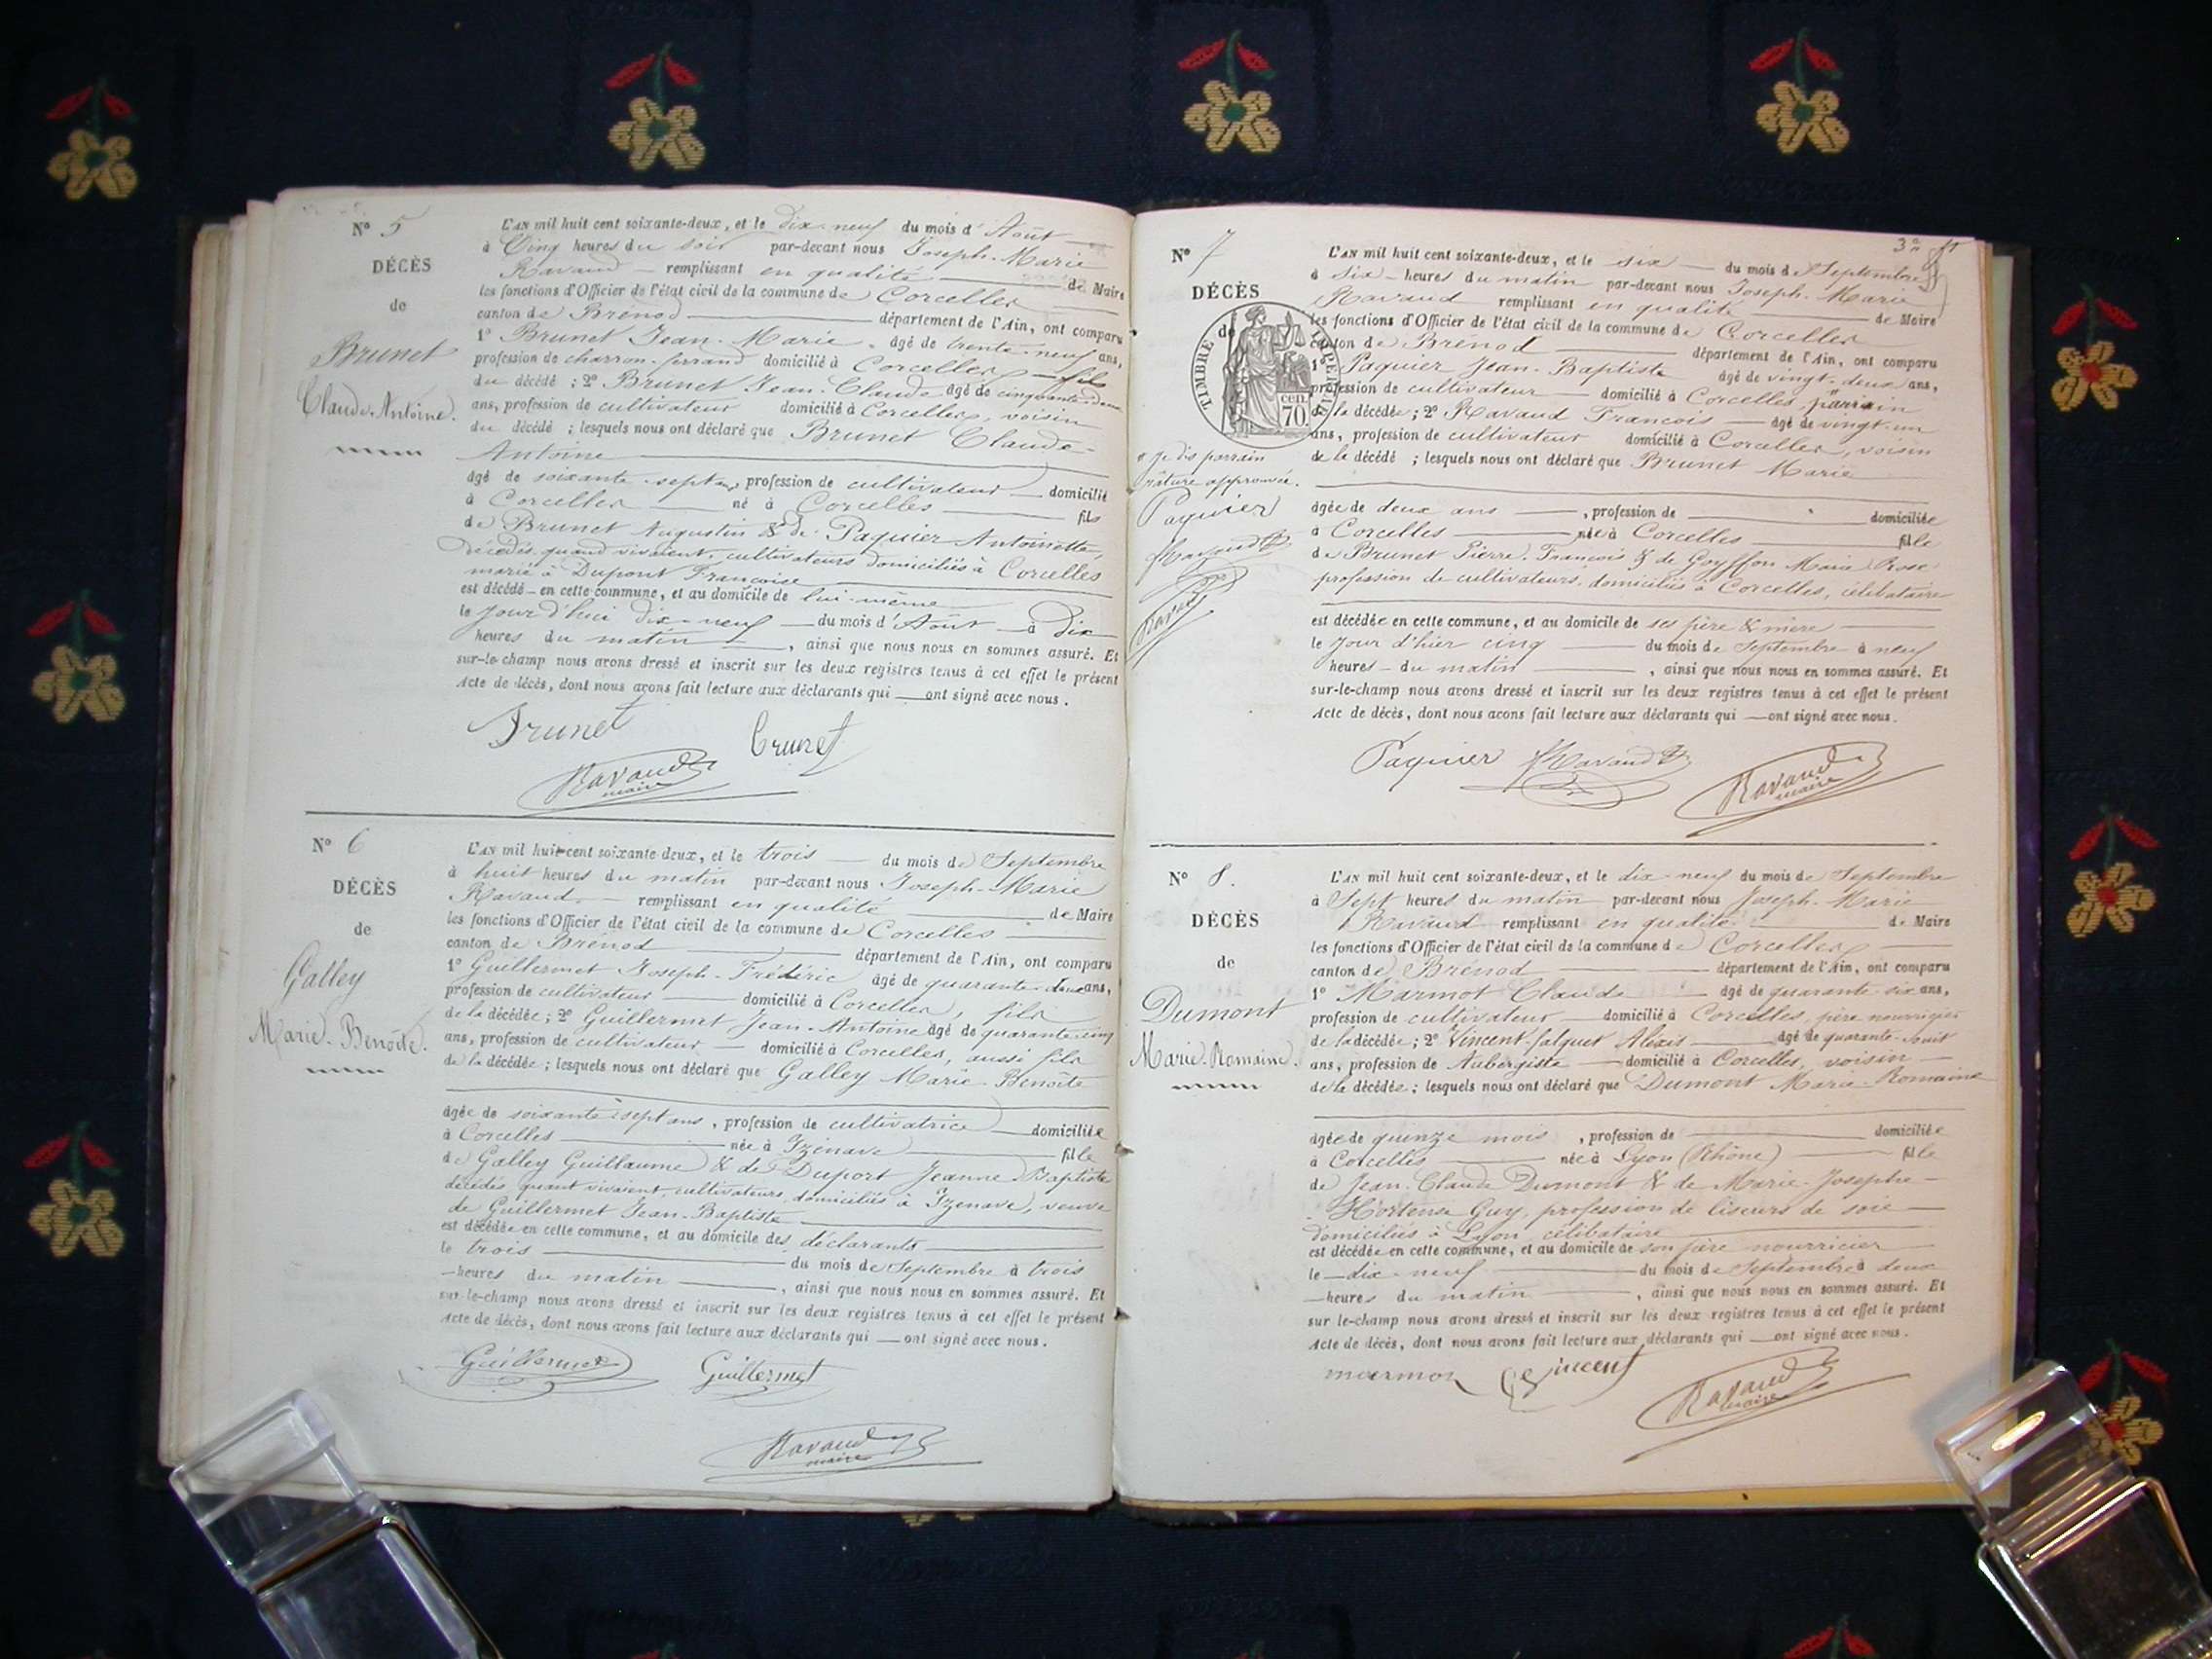 N° 5
DÉCÈS
de
Brunet
Claude-Antoine.
L'AN mil huit cent soixante-deux, et le dix-neuf du mois d'Août
à Cinq heures du soir par-devant nous Joseph-Marie
Ravaud remplissant en qualité de Maire
les fonctions d'Officier de l'état civil de la commune de Corcelles
canton de Brénod département de l'Ain, ont comparu
1° Brunet Jean-Marie âgé de trente-neuf ans,
profession de charron-ferrand domicilié à Corcelles fils
du décédé ; 2° Brunet Jean-Claude âgé de cinquante-deux
ans, profession de cultivateur domicilié à Corcelles, voisin
du décédé ; lesquels nous ont déclaré que Brunet Claude-
Antoine
âgé de soixante-sept ans, profession de cultivateur domicilié
à Corcelles né à Corcelles fils
de Brunet Augustin & de Paquier Antoinette,
décédés quand vivaient, cultivateurs domiciliés à Corcelles
marié à Dupont Françoise
est décédé en cette commune, et au domicile de lui-même
le jour d'hui dix-neuf du mois d'Août à dix
heures du matin, ainsi que nous nous en sommes assuré. Et
sur-le-champ nous avons dressé et inscrit sur les deux registres tenus à cet effet le présent
Acte de décès, dont nous avons fait lecture aux déclarants qui ont signé avec nous.
Brunet Brunet
Ravaud
maire
N° 6
DÉCÈS
de
Galley
Marie-Benoîte.
L'AN mil huit cent soixante-deux, et le trois du mois de Septembre
à huit heures du matin par-devant nous Joseph-Marie
Ravaud remplissant en qualité de Maire
les fonctions d'Officier de l'état civil de la commune de Corcelles
canton de Brénod département de l'Ain, ont comparu
1° Guillermet Joseph-Frédéric âgé de quarante-deux ans,
profession de cultivateur domicilié à Corcelles, fils
de la décédée ; 2° Guillermet Jean-Antoine âgé de quarante-cinq
ans, profession de cultivateur domicilié à Corcelles, aussi fils
de la décédée ; lesquels nous ont déclaré que Galley Marie-Benoîte
âgée de soixante-sept ans, profession de cultivatrice domiciliée
à Corcelles née à Izenave fille
de Galley Guillaume & de Duport Jeanne-Baptiste
décédés quant vivaient, cultivateurs domiciliés à Izenave, veuve
de Guillermet Jean-Baptiste
est décédée en cette commune, et au domicile des déclarants
le trois du mois de Septembre à trois
heures du matin, ainsi que nous nous en sommes assuré. Et
sur-le-champ nous avons dressé et inscrit sur les deux registres tenus à cet effet le présent
Acte de décès, dont nous avons fait lecture aux déclarants qui ont signé avec nous.
Guillermet Guillermet
Ravaud
maire
3e
N° 7
DÉCÈS
de
TIMBRE IMPÉRIAL
cen.
70.
je dis parrain
râture approuvée.
Paquier
Ravaud
Ravaud
L'AN mil huit cent soixante-deux, et le six du mois de Septembre
à six heures du matin par-devant nous Joseph-Marie
Ravaud remplissant en qualité de Maire
les fonctions d'Officier de l'état civil de la commune de Corcelles
canton de Brénod département de l'Ain, ont comparu
1° Paquier Jean-Baptiste âgé de vingt-deux ans,
profession de cultivateur domicilié à Corcelles, parrain
de la décédée ; 2° Ravaud François âgé de vingt-un
ans, profession de cultivateur domicilié à Corcelles, voisin
de la décédé ; lesquels nous ont déclaré que Brunet Marie
âgée de deux ans, profession de domiciliée
à Corcelles née à Corcelles fille
de Brunet Pierre-François & de Goyffon Marie Rose
profession de cultivateurs, domiciliés à Corcelles, célibataire
est décédée en cette commune, et au domicile de ses père & mère
le jour d'hier cinq du mois de Septembre à neuf
heures du matin, ainsi que nous nous en sommes assuré. Et
sur-le-champ nous avons dressé et inscrit sur les deux registres tenus à cet effet le présent
Acte de décès, dont nous avons fait lecture aux déclarants qui ont signé avec nous.
Paquier Ravaud Ravaud
maire
N° 8.
DÉCÈS
de
Dumont
Marie-Romaine.
L'AN mil huit cent soixante-deux, et le dix-neuf du mois de Septembre
à Sept heures du matin par-devant nous Joseph-Marie
Ravaud remplissant en qualité de Maire
les fonctions d'Officier de l'état civil de la commune de Corcelles
canton de Brénod département de l'Ain, ont comparu
1° Marmot Claude âgé de quarante-six ans,
profession de cultivateur domicilié à Corcelles, père nourricier
de la décédée ; 2° Vincent-falquet Alexis âgé de quarante-huit
ans, profession de Aubergiste domicilié à Corcelles, voisin
de la décédée ; lesquels nous ont déclaré que Dumont Marie-Romaine
âgée de quinze mois, profession de domiciliée
à Corcelles née à Lyon (Rhône) fille
de Jean-Claude Dumont & de Marie-Josephe-
Hortense Guy, profession de liseurs de soie
domiciliés à Lyon, célibataire
est décédée en cette commune, et au domicile de son père nourricier
le dix-neuf du mois de Septembre à deux
heures du matin, ainsi que nous nous en sommes assuré. Et
sur le-champ nous avons dressé et inscrit sur les deux registres tenus à cet effet le présent
Acte de décès, dont nous avons fait lecture aux déclarants qui ont signé avec nous.
marmot Vincent Ravaud
maire